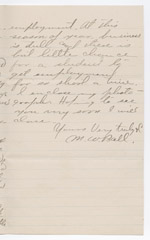 employment. At this
season of year business
is dull and there is
but little chance
for a student to
get employment
for so short a time
I enclose my photo
graph. Hoping to see
you very soon I will
close.
Yours Very truly,
M. W.